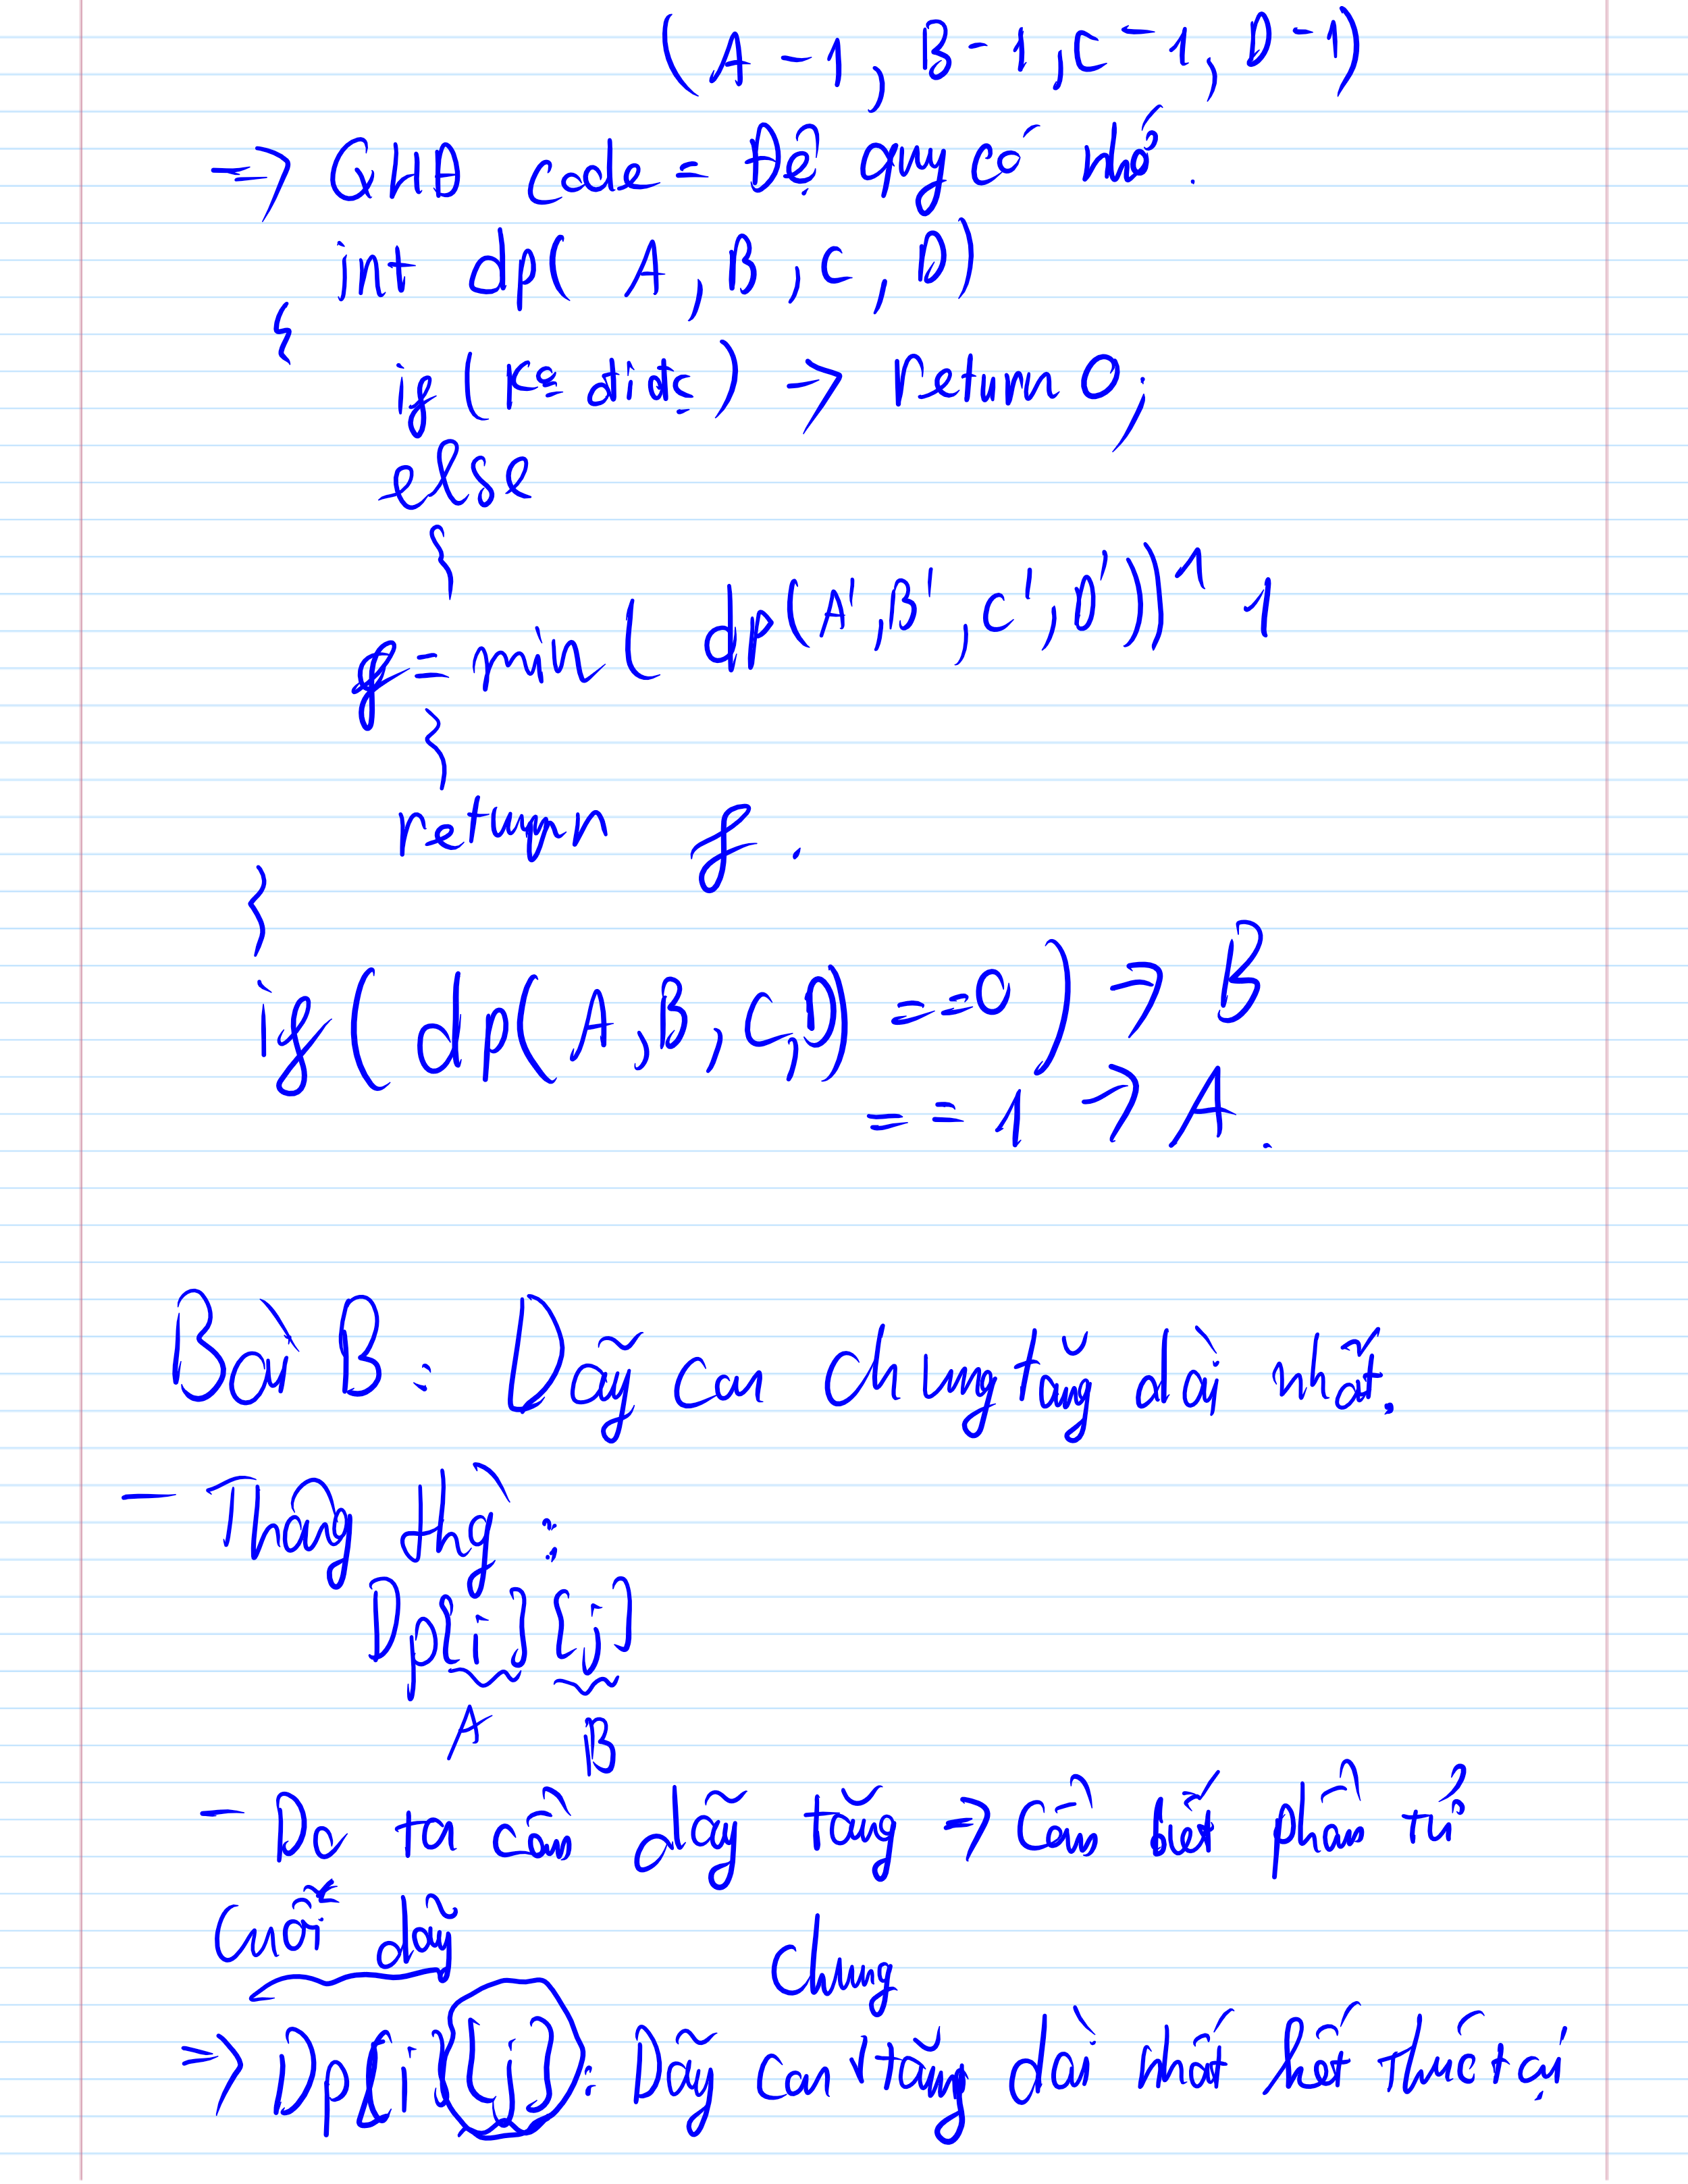 (A - 1, B - 1, C - 1, D - 1)
=> QHĐ code = Đệ quy có nhớ.
int dp( A, B, C, D)
{
if ( ) -> return 0;
else
{
f = min ( dp(A', B', C', D')) ^ 1
}
return f.
}
if ( dp(A, B, C, D) == 0 ) -> B
== 1 -> A.
Bài B: Dãy con chung tăng dài nhất.
- Thông thg :
Dp[i][j]
A B
- Do ta cần dãy tăng => Cần biết phần tử
cuối dãy
=> Dp[i][j]: Dãy con chung tăng dài nhất kết thúc tại